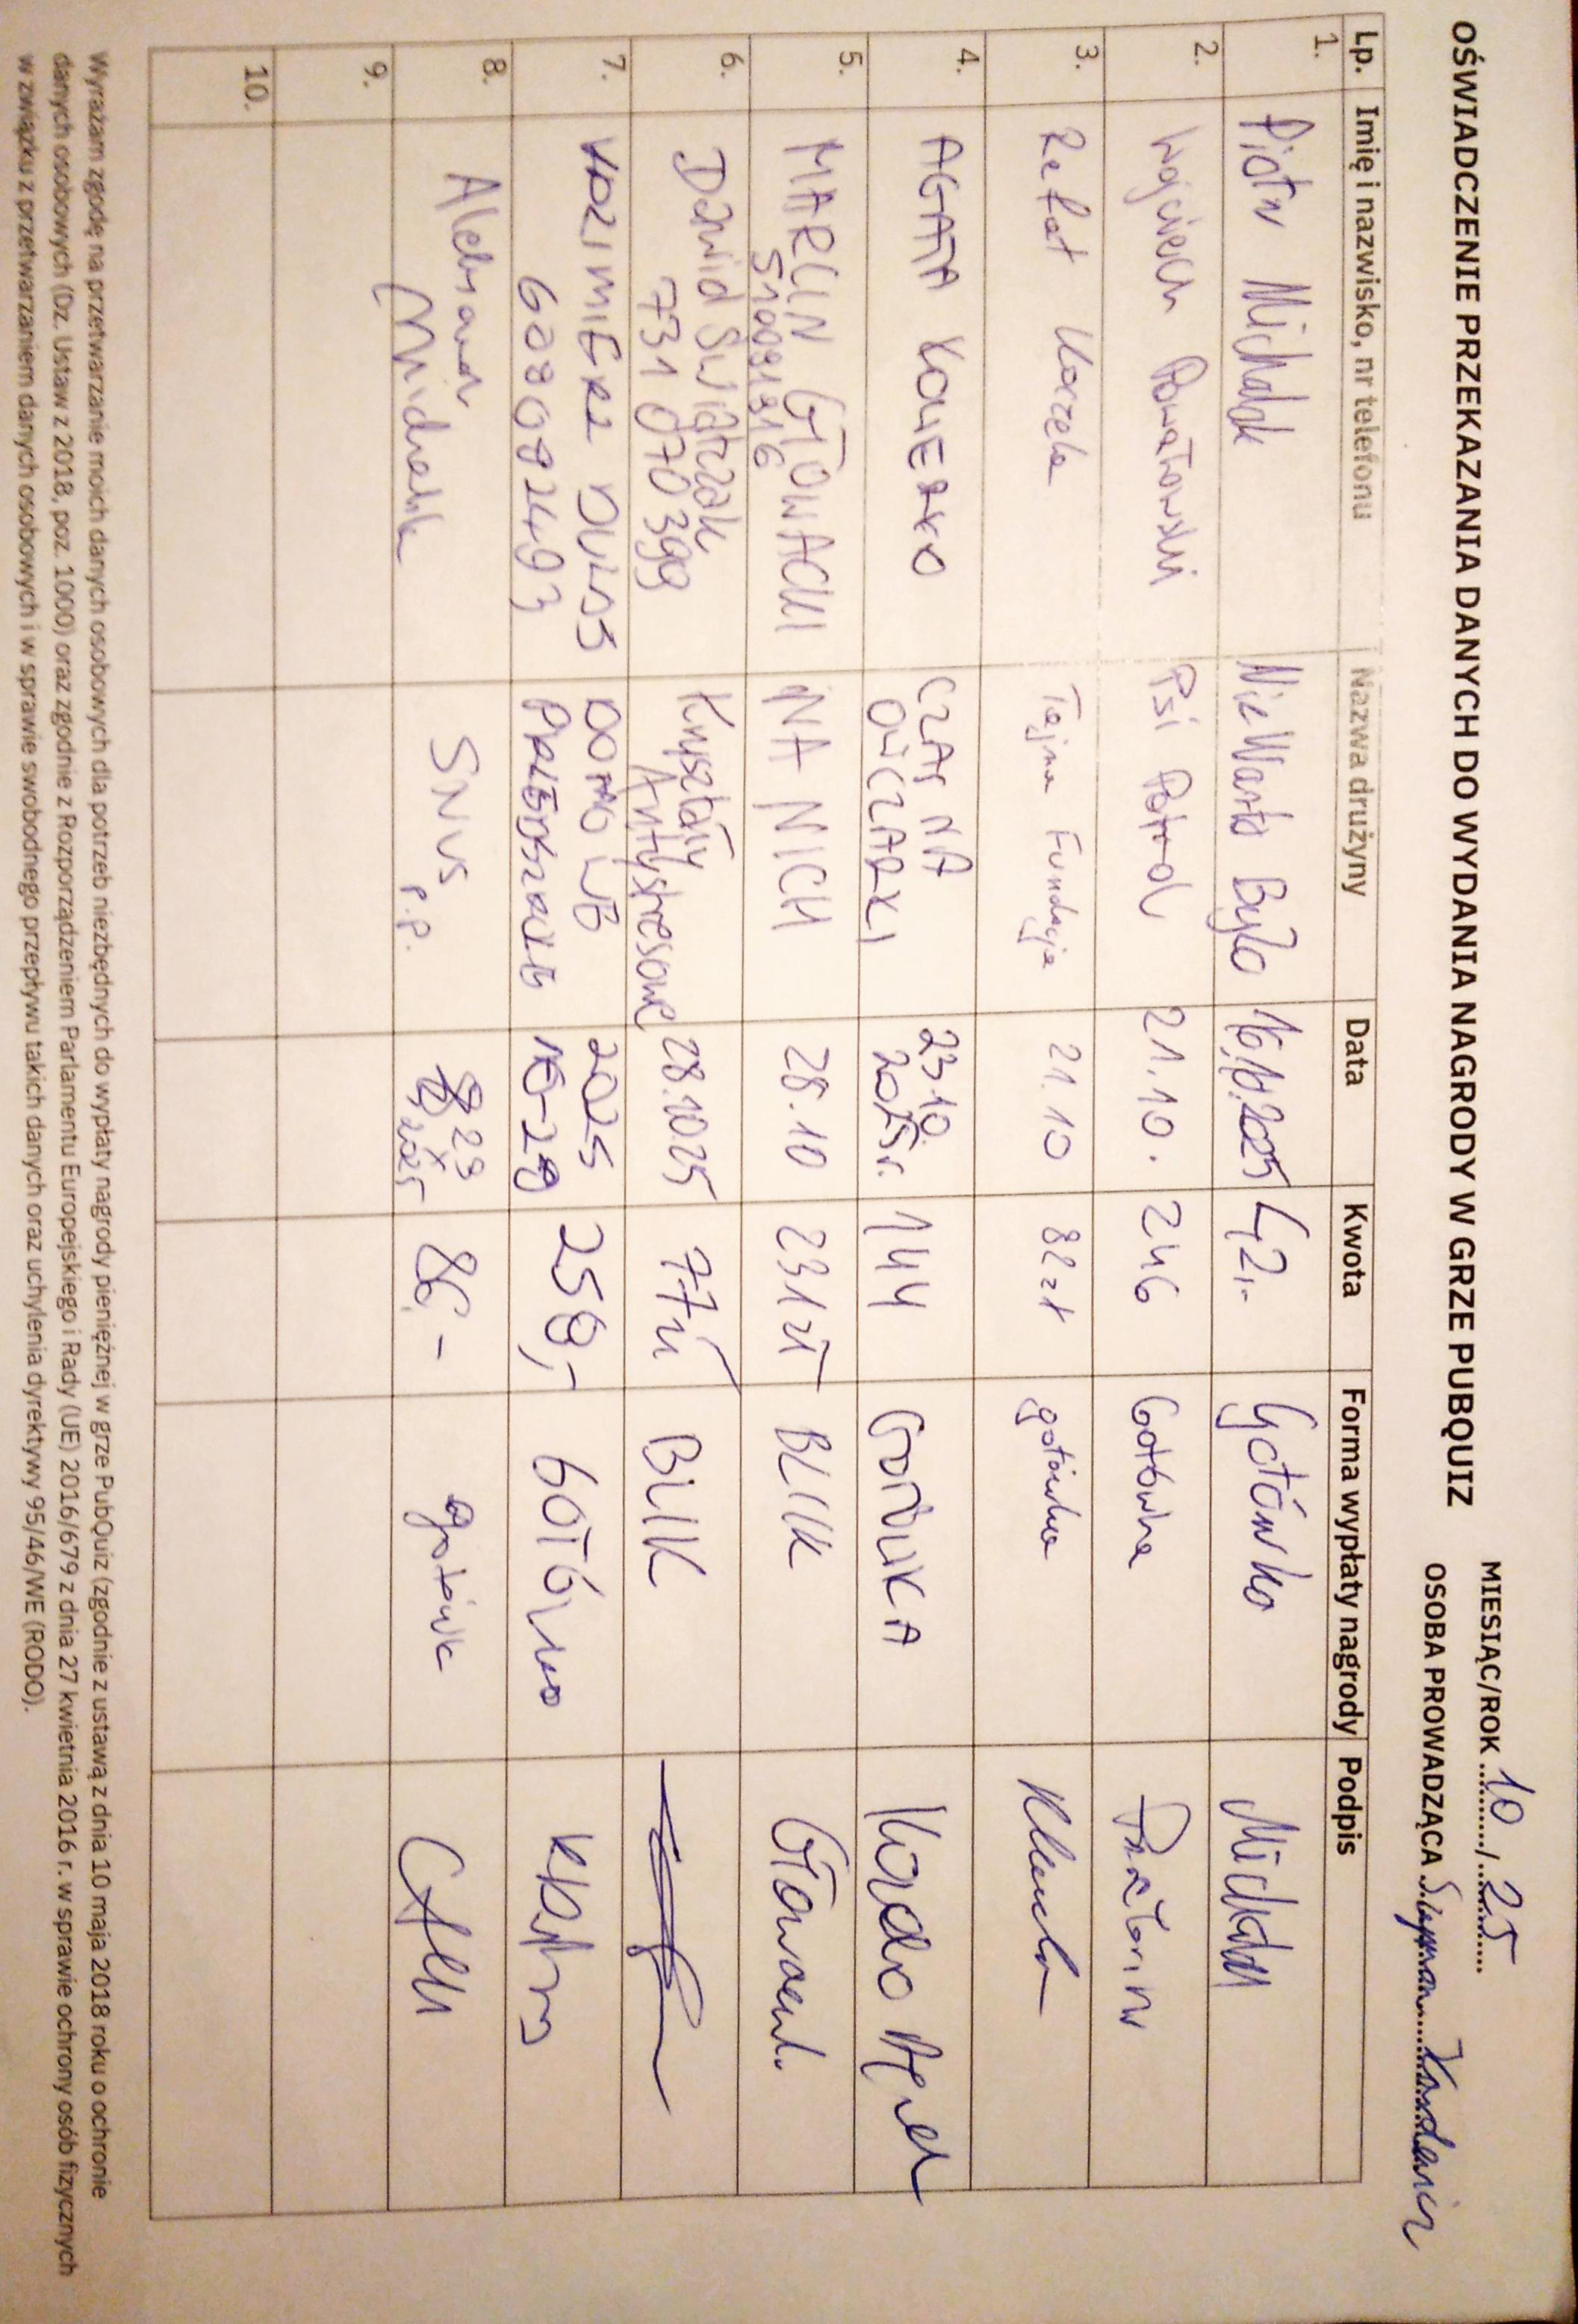 OŚWIADCZENIE PRZEKAZANIA DANYCH DO WYDANIA NAGRODY W GRZE PUBQUIZ
MIESIĄC/ROK 10 / 25
OSOBA PROWADZĄCA Szymon
Lp. Imię i nazwisko, nr telefonu Nazwa drużyny Data Kwota Forma wypłaty nagrody Podpis
1. Piotr Michalak Nie Warto Było 16.10.2025 42,- Gotówka Michalak
2. Wojciech Powałowski Psi Patrol 21.10. 246 Gotówka
3. Rafał Korzela Tajna Fundacja 21.10 82 zł gotówka
4. AGATA CZAR NA 23.10. 144
OWCZARKI 2025r.
5. MARCIN GŁOWACKI NA NICH 28.10 231 zł BLIK
510091316
6. Dawid Świątczak Kryształy 28.10.25 77 zł BLIK
731 070 399 Antystresowe
7. 2025 258,- GOTÓWKA
608082493 10-28
8. Aleksander Michalak SNUS P.P. 29 X 2025 86,-
9.
10.
Wyrażam zgodę na przetwarzanie moich danych osobowych dla potrzeb niezbędnych do wypłaty nagrody pieniężnej w grze PubQuiz (zgodnie z ustawą z dnia 10 maja 2018 roku o ochronie
danych osobowych (Dz. Ustaw z 2018, poz. 1000) oraz zgodnie z Rozporządzeniem Parlamentu Europejskiego i Rady (UE) 2016/679 z dnia 27 kwietnia 2016 r. w sprawie ochrony osób fizycznych
w związku z przetwarzaniem danych osobowych i w sprawie swobodnego przepływu takich danych oraz uchylenia dyrektywy 95/46/WE (RODO).